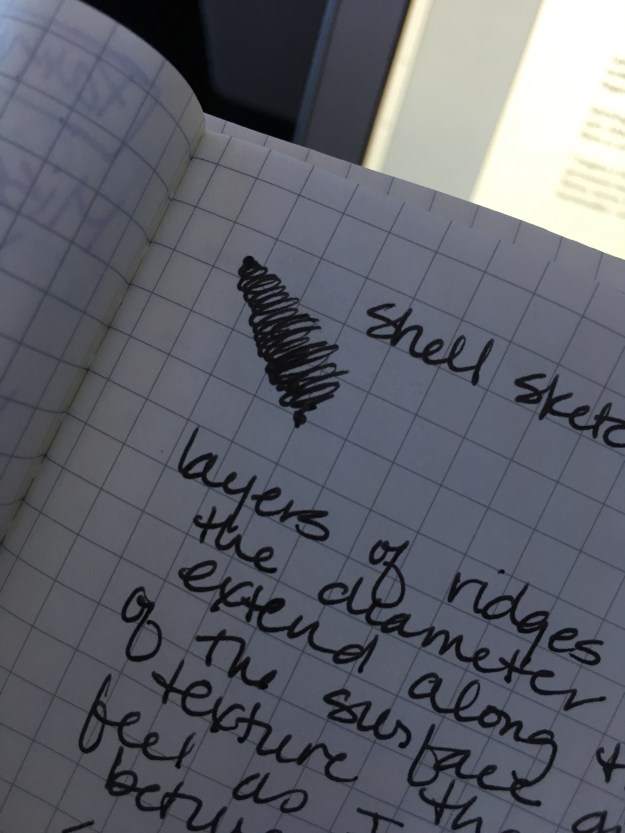 shell sketc
layers of ridges
the diameter
extend along t
of the surface
texture th
feel as I
betw